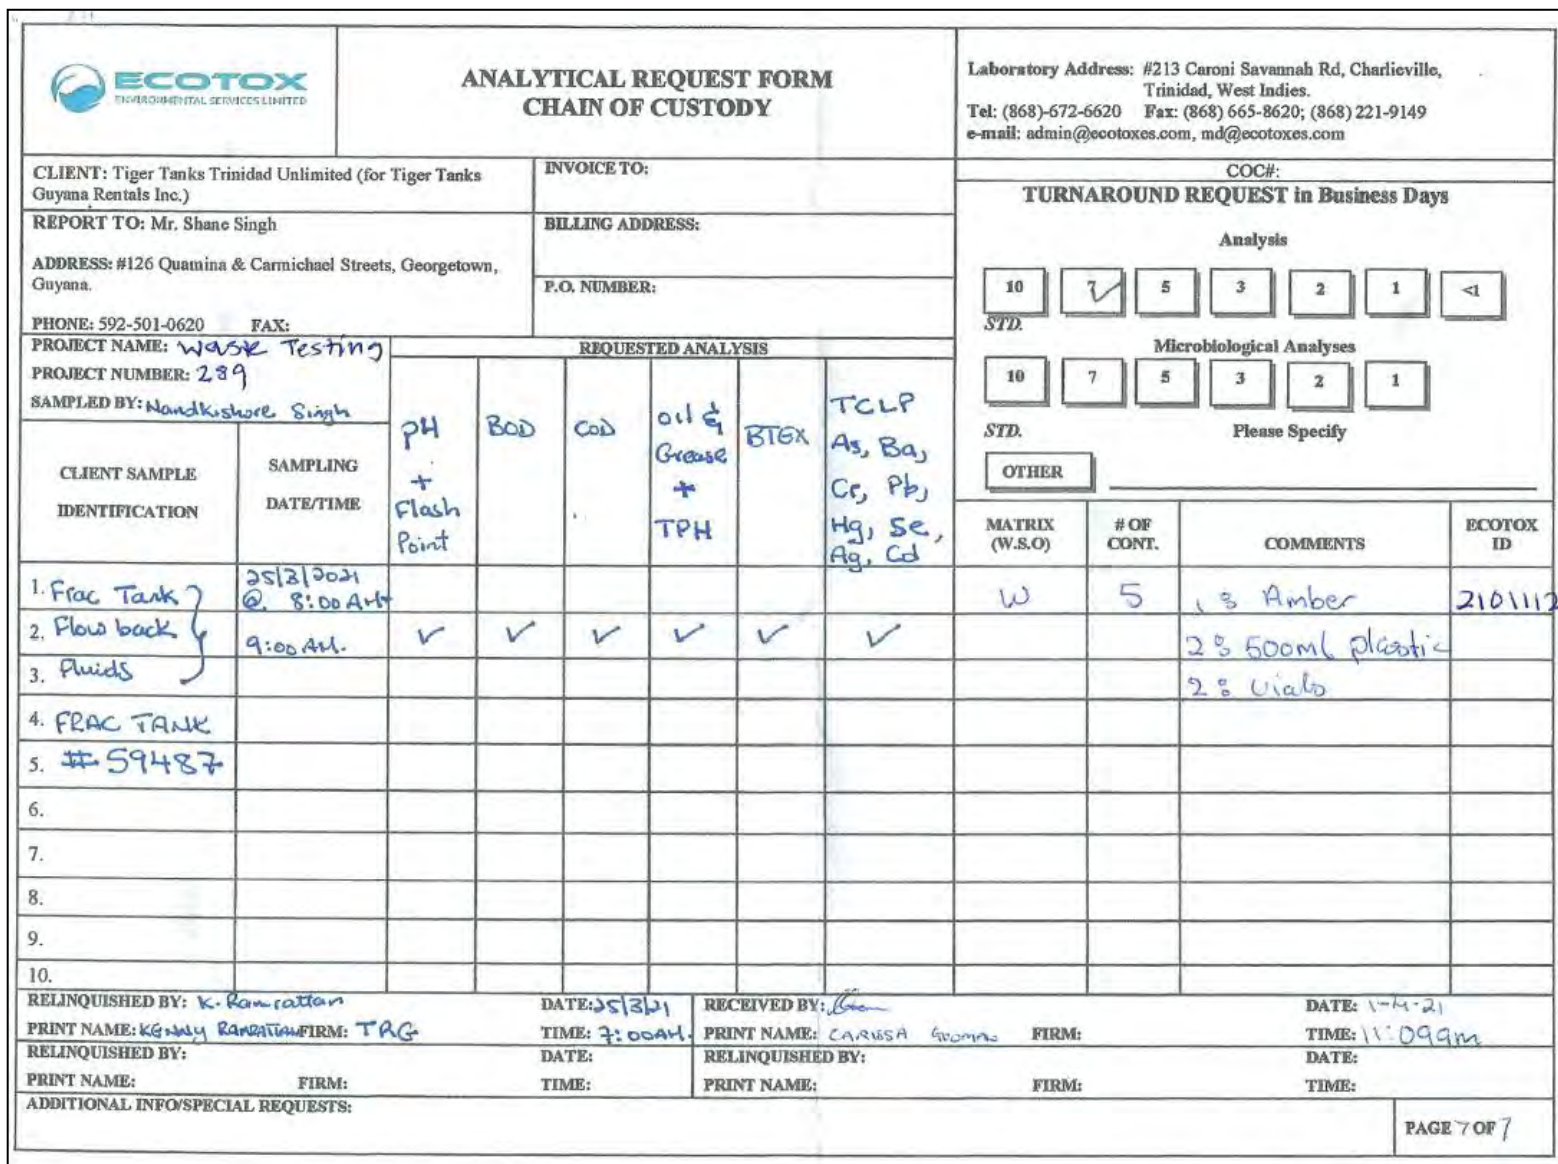 ECOTOX
ENVIRONMENTAL SERVICES LIMITED
ANALYTICAL REQUEST FORM
CHAIN OF CUSTODY
Laboratory Address: #213 Caroni Savannah Rd, Charlieville,
Trinidad, West Indies.
Tel: (868)-672-6620 Fax: (868) 665-8620; (868) 221-9149
e-mail: admin@ecotoxes.com, md@ecotoxes.com
CLIENT: Tiger Tanks Trinidad Unlimited (for Tiger Tanks
Guyana Rentals Inc.)
INVOICE TO:
COC#:
REPORT TO: Mr. Shane Singh
ADDRESS: #126 Quamina & Carmichael Streets, Georgetown,
Guyana.
PHONE: 592-501-0620 FAX:
BILLING ADDRESS:
P.O. NUMBER:
TURNAROUND REQUEST in Business Days
Analysis
10 7 5 3 2 1 <1
STD.
Microbiological Analyses
10 7 5 3 2 1
STD. Please Specify
OTHER
PROJECT NAME: Waste Testing
PROJECT NUMBER: 289
SAMPLED BY: Nandkishore Singh
REQUESTED ANALYSIS
CLIENT SAMPLE
IDENTIFICATION
SAMPLING
DATE/TIME
pH
+
Flash
Point
BOD
COD
oil &
Grease
+
TPH
BTEX
TCLP
As, Ba,
Cr, Pb,
Hg, Se,
Ag, Cd
MATRIX
(W.S.O)
# OF
CONT.
COMMENTS
ECOTOX
ID
1. Frac Tank 25/3/2021
@ 8:00 AM W 5 1 : Amber 2101112
2. Flow back 9:00 AM. ✓ ✓ ✓ ✓ ✓ ✓ 2 : 500ml plastic
3. Fluids 2 : vials
4. FRAC TANK
5. #59487
6.
7.
8.
9.
10.
RELINQUISHED BY: K. Ramrattan DATE: 25/3/21 RECEIVED BY: DATE: 1-4-21
PRINT NAME: KENNY RAMRATTAN FIRM: TRG TIME: 7:00AM. PRINT NAME: CARISSA FIRM: TIME: 11:09am
RELINQUISHED BY: DATE: RELINQUISHED BY: DATE:
PRINT NAME: FIRM: TIME: PRINT NAME: FIRM: TIME:
ADDITIONAL INFO/SPECIAL REQUESTS:
PAGE 7 OF 7